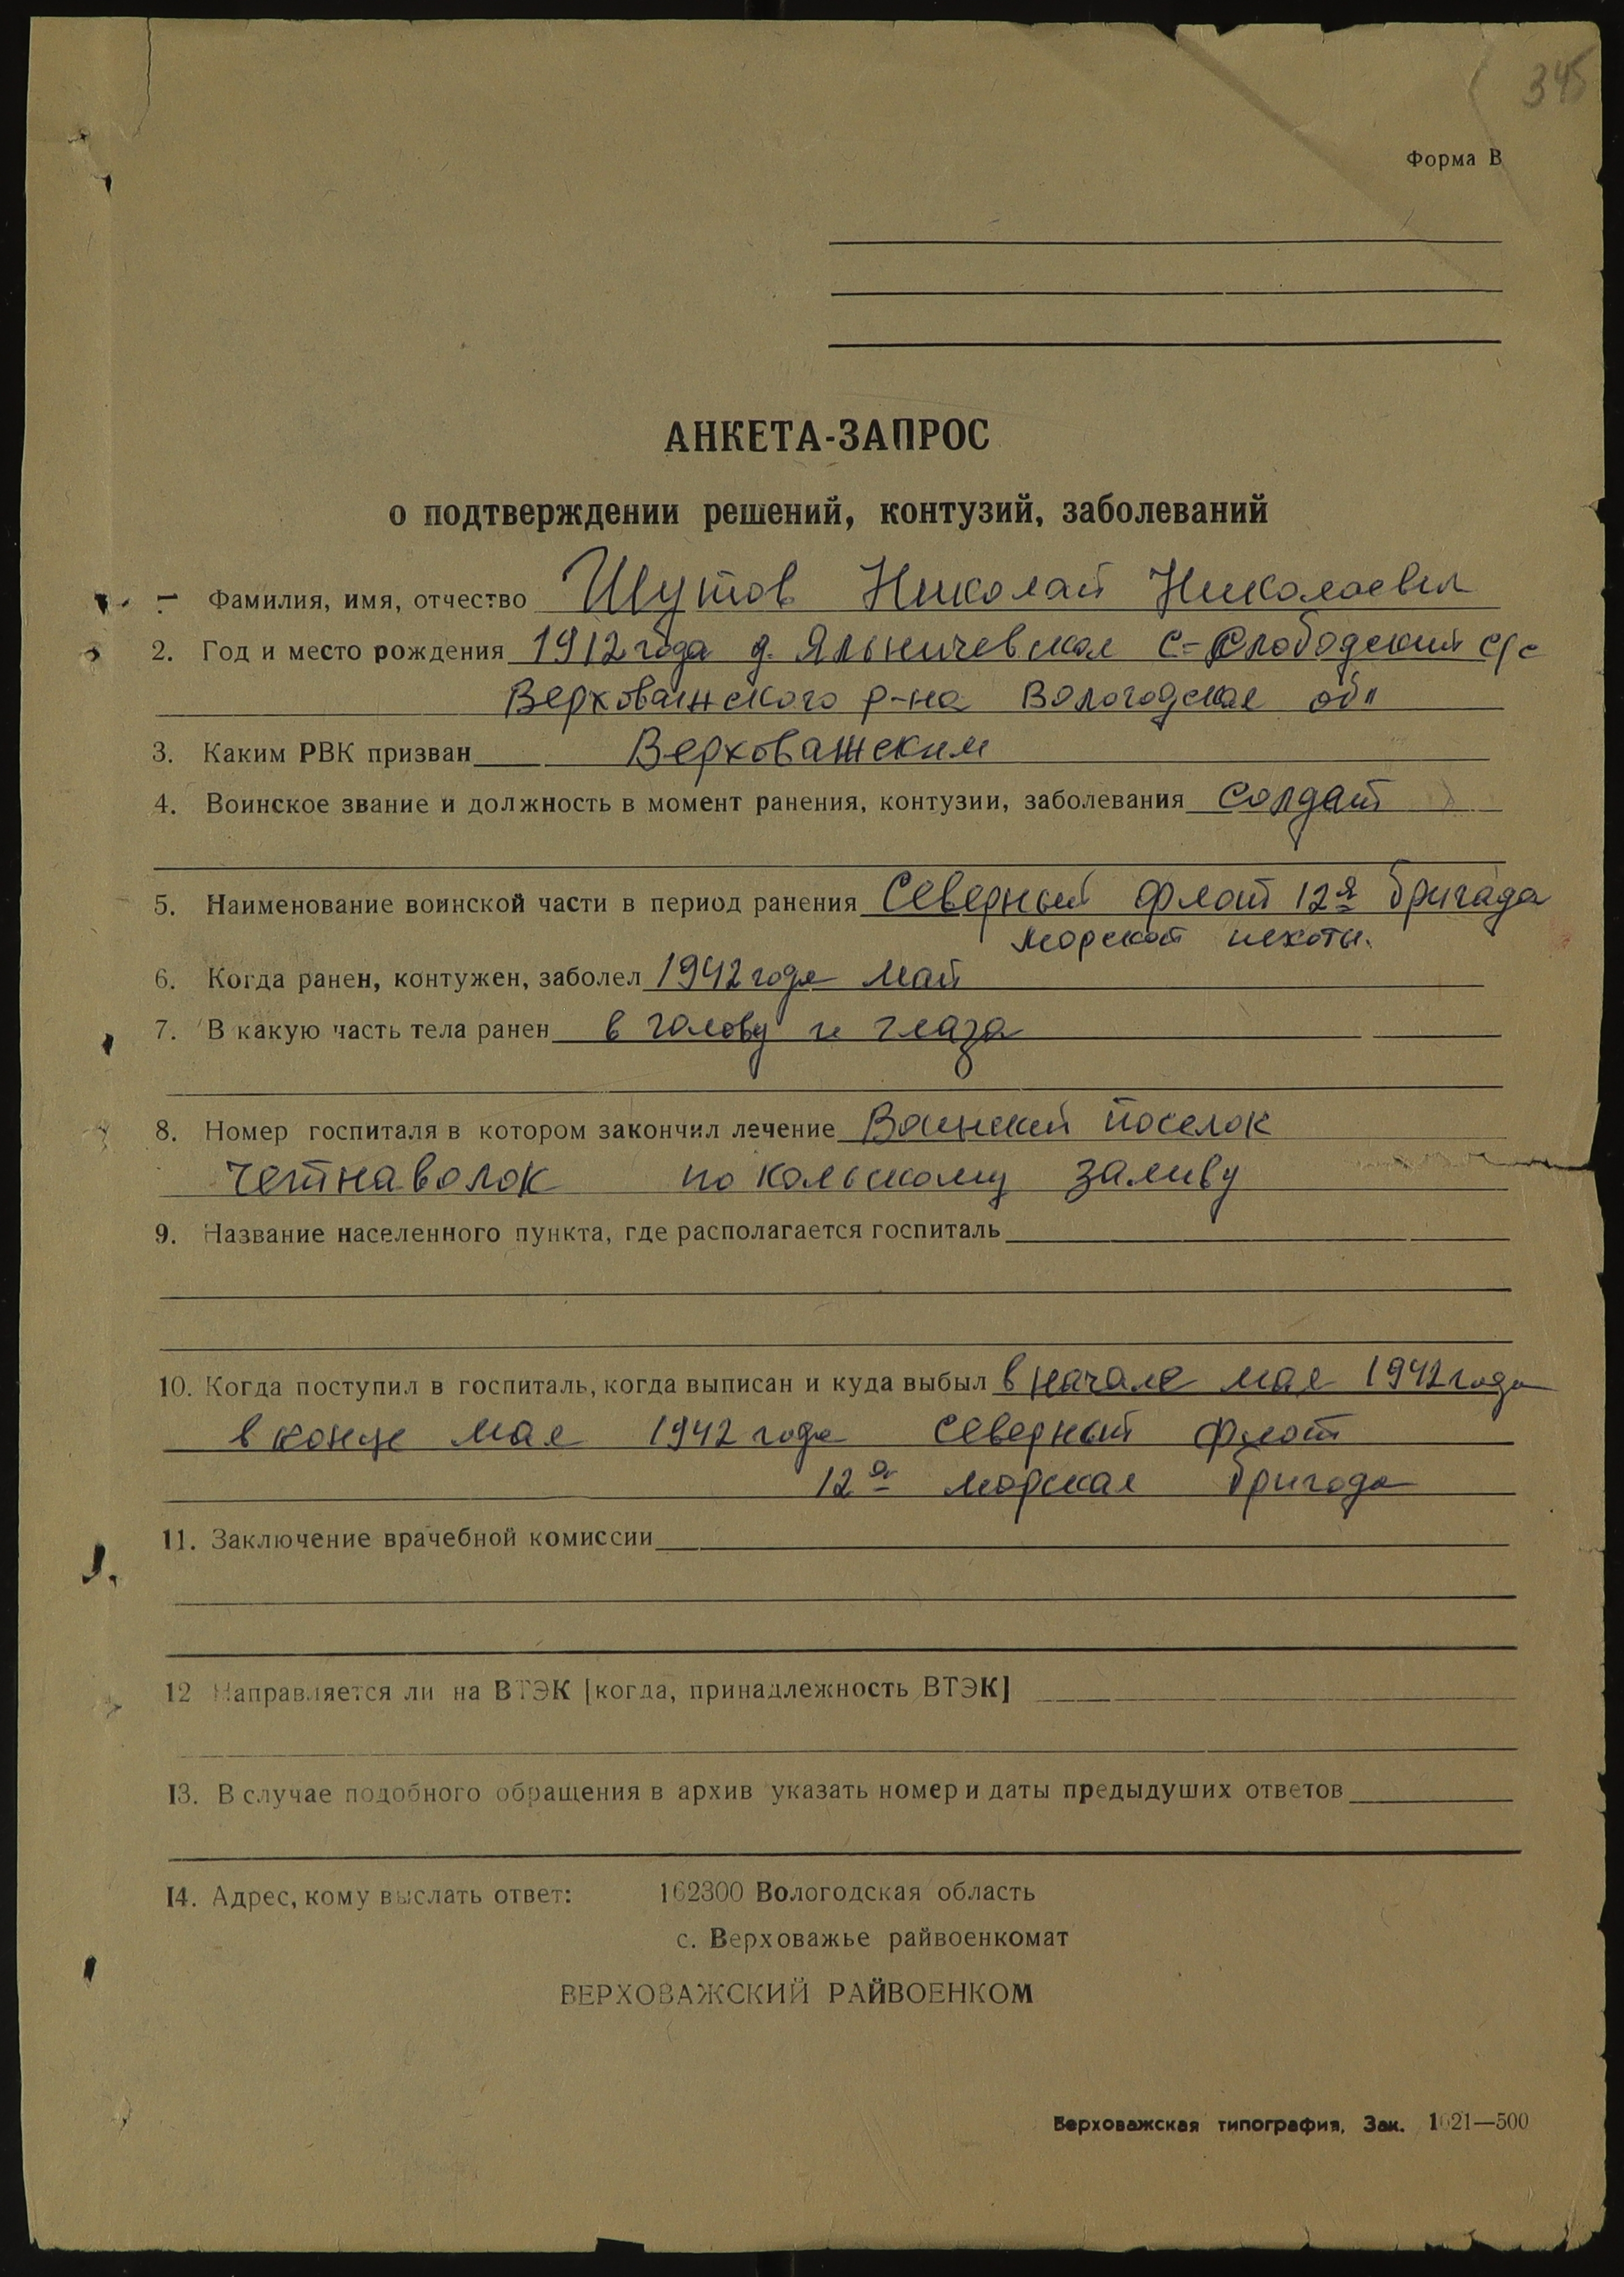 345
Форма В
АНКЕТА-ЗАПРОС
о подтверждении решений, контузий, заболеваний
1 Фамилия, имя, отчество Шутов Николай Николаевич
2. Год и место рождения 1912 года д. Яльничевская С-Слободский с/с
Верховажского р-на Вологодская обл
3. Каким РВК призван Верховажским
4. Воинское звание и должность в момент ранения, контузии, заболевания солдат
5. Наименование воинской части в период ранения Северный флот 12я бригада
морской пехоты.
6. Когда ранен, контужен, заболел 1942 года май
7. В какую часть тела ранен в голову и глаза
8. Номер госпиталя в котором закончил лечение Воинский поселок
Четнаволок по кольскому заливу
9. Название населенного пункта, где располагается госпиталь
10. Когда поступил в госпиталь, когда выписан и куда выбыл в начале мая 1942 года
в конце мая 1942 года Северный флот
12я морская бригада
11. Заключение врачебной комиссии
12 Направляется ли на ВТЭК [когда, принадлежность ВТЭК]
13. В случае подобного обращения в архив указать номер и даты предыдуших ответов
14. Адрес, кому выслать ответ: 162300 Вологодская область
с. Верховажье райвоенкомат
ВЕРХОВАЖСКИЙ РАЙВОЕНКОМ
Верховажская типография, Зак. 1021—500